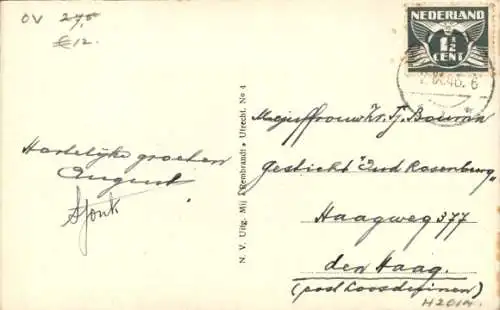 OV 27,5
€12.
NEDERLAND
1½
CENT
46. 6
Hartelijke groeten
August
Mejuffrouw Zr. Tj. Bouma
Gesticht "Oud Rosenburg"
Haagweg 377
den Haag.
(post Loosduinen)
H2014
N. V. Uitg. Mij „Rembrandt" Utrecht. No 4